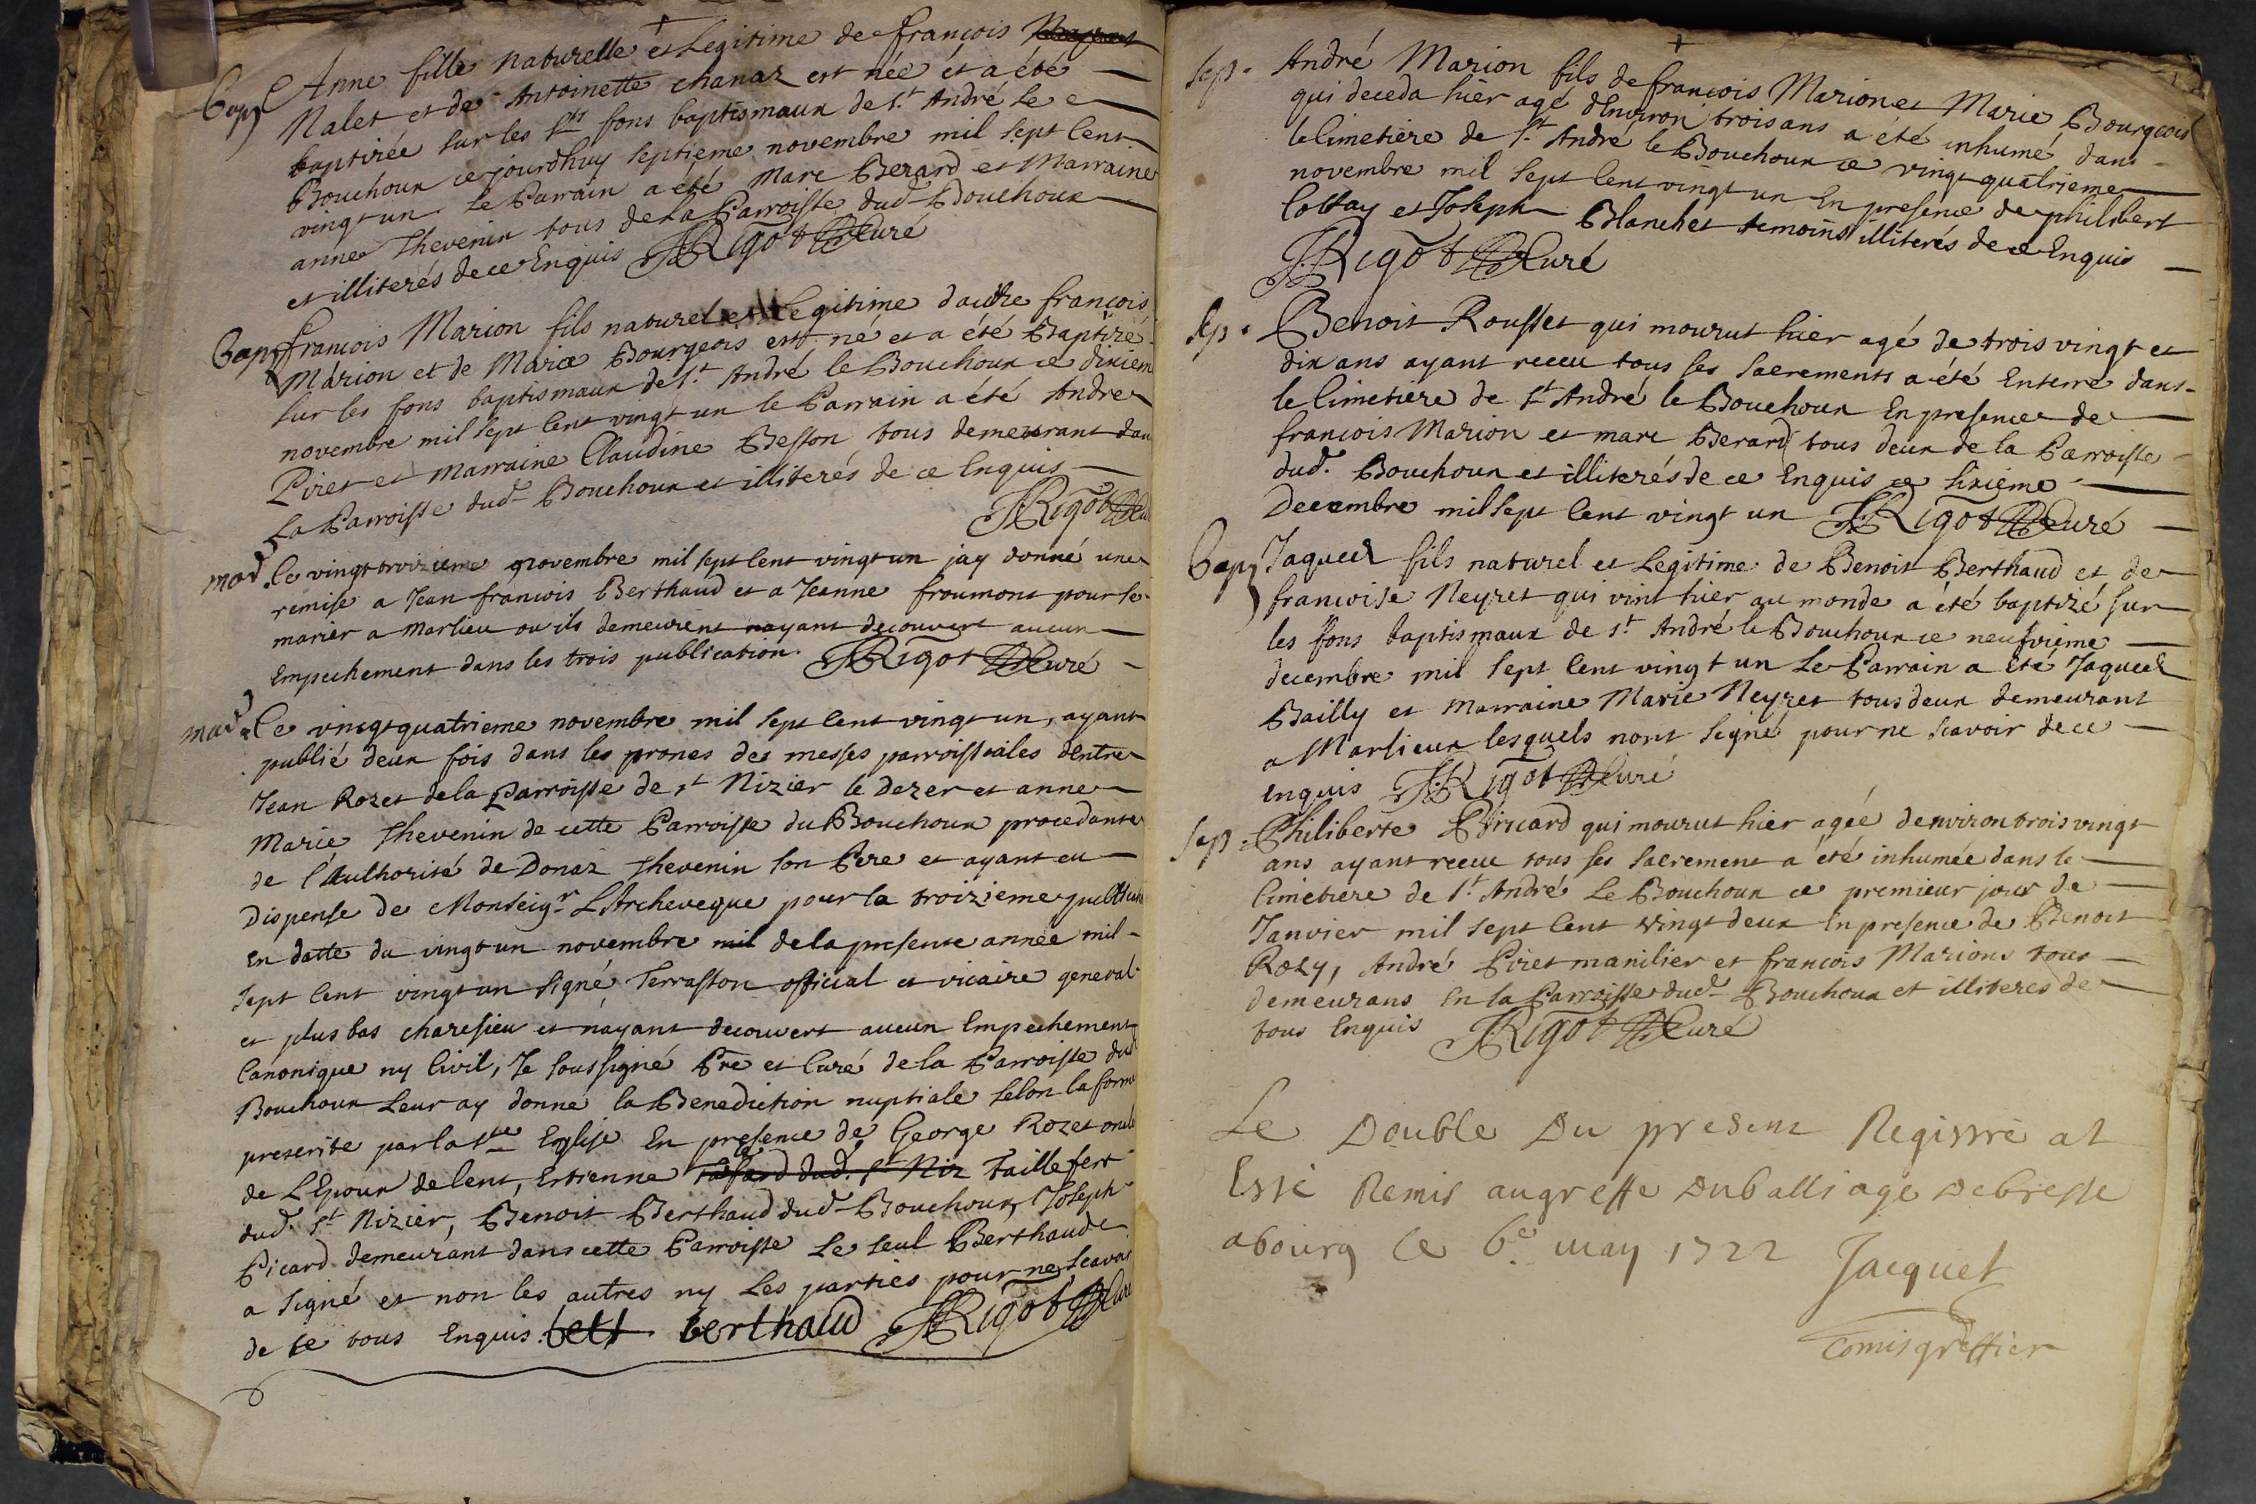 Bapt Anne fille naturelle et Legitime de françois
Nalet et de Antoinette chanaz est née et a été
baptizée sur les sts fons baptismaux de st. André le
Bouchoux ce jourdhuy septieme novembre mil sept Cent
vingt un. Le Parrain a été Marc Berard et Marraine
anne Thevenin tous de la Parroisse dud Bouchoux
et illiterés de ce Enquis JRigot Curé
Bapt françois Marion fils naturel et Legitime dautre françois
Marion et de Marie Bourgeois est né et a été Baptizé
sur les fons baptismaux de st. André le Bouchoux ce dixiem
novembre mil sept Cent vingt un le Parrain a été Andre
Piret et Marraine Claudine Besson tous demeurant dan
La Parroisse dud Bouchoux et illiterés de ce Enquis
JRigot
Le vingt troizieme novembre mil sept Cent vingt un jay donné une
remise a Jean francois Berthaud et a Jeanne froumont pour se
marier a Marlieu ou ils demeurent nayant decouvert aucun
Empechement dans les trois publication. JRigot Curé
Le vingt quatrieme novembre mil sept Cent vingt un, ayant
publié deux fois dans les prones des messes parroissiales dentre
Jean Rozet de la Parroisse de st Nizier le dezer et anne
Marie Thevenin de cette Parroisse du Bouchoux procedante
de l'Authorité de Donaz Thevenin son Pere et ayant eu
Dispense de Monseigr. L'Archeveque pour la troizieme
En datte du vingt un novembre mil de la presente année mil
sept Cent vingt un signé Terrasson official et vicaire general
et plus bas charesieu et nayant decouvert aucun Empechement
Canonique ny Civil, Je soussigné Pre et Curé de la Parroisse dud
Bouchoux Leur ay donné la Benediction nuptiale selon la forme
prescrite par la ste Eglise En presence de George Rozet oncle
de L'Epoux de lent, Estienne Taillefert
dud. st Nizier, Benoit Berthaud dud Bouchoux, Joseph
Picard demeurant dans cette Parroisse Le seul Berthaud
a signé et non les autres ny Les parties pour ne scavoir
de ce tous Enquis. berthaud JRigot
sep. André Marion fils de francois Marion et Marie Bourgeois
qui deceda hier agé dEnviron trois ans a été inhumé dans
le Cimetiere de st André le Bouchoux ce vingt quatrieme
novembre mil sept Cent vingt un En presence de philibert
Cottay et Joseph Blanchet temoins illiterés de ce Enquis
JRigot Curé
sep. Benoit Rousset qui mourut hier agé de trois vingt et
dix ans ayant receu tous ses sacrements a été Enterré dans
le Cimetiere de st André le Bouchoux En presence de
francois Marion et marc Berard tous deux de la Parroisse
dud. Bouchoux et illiterés de ce Enquis ce sixieme
Decembre mil sept Cent vingt un JRigot Curé
Bapt Jaques fils naturel et Legitime de Benoit Berthaud et de
francoise Neyret qui vint hier au monde a été baptizé sur
les fons baptismaux de st. André le Bouchoux ce neufvieme
decembre mil sept Cent vingt un Le Parrain a Eté Jaques
Bailly et Marraine Marie Neyret tous deux demeurant
a Marlieux lesquels nont signé pour ne scavoir de ce
Enquis JRigot Curé
sep. Philiberte qui mourut hier agée denviron trois vingt
ans ayant receu tous ses sacrement a été inhumée dans le
Cimetiere de st. André Le Bouchoux ce premieur jour de
Janvier mil sept Cent vingt deux En presence de Benoit
Rozy, André Piret manilier et francois Marions tous
demeurans En la Parroisse dud Bouchoux et illiteres de
tous Enquis JRigot Curé
Le Double Du present Registre at
Esté Remis au greffe Du balliage De bresse
a bourg le 6e may 1722 Jacquet
Comis greffier